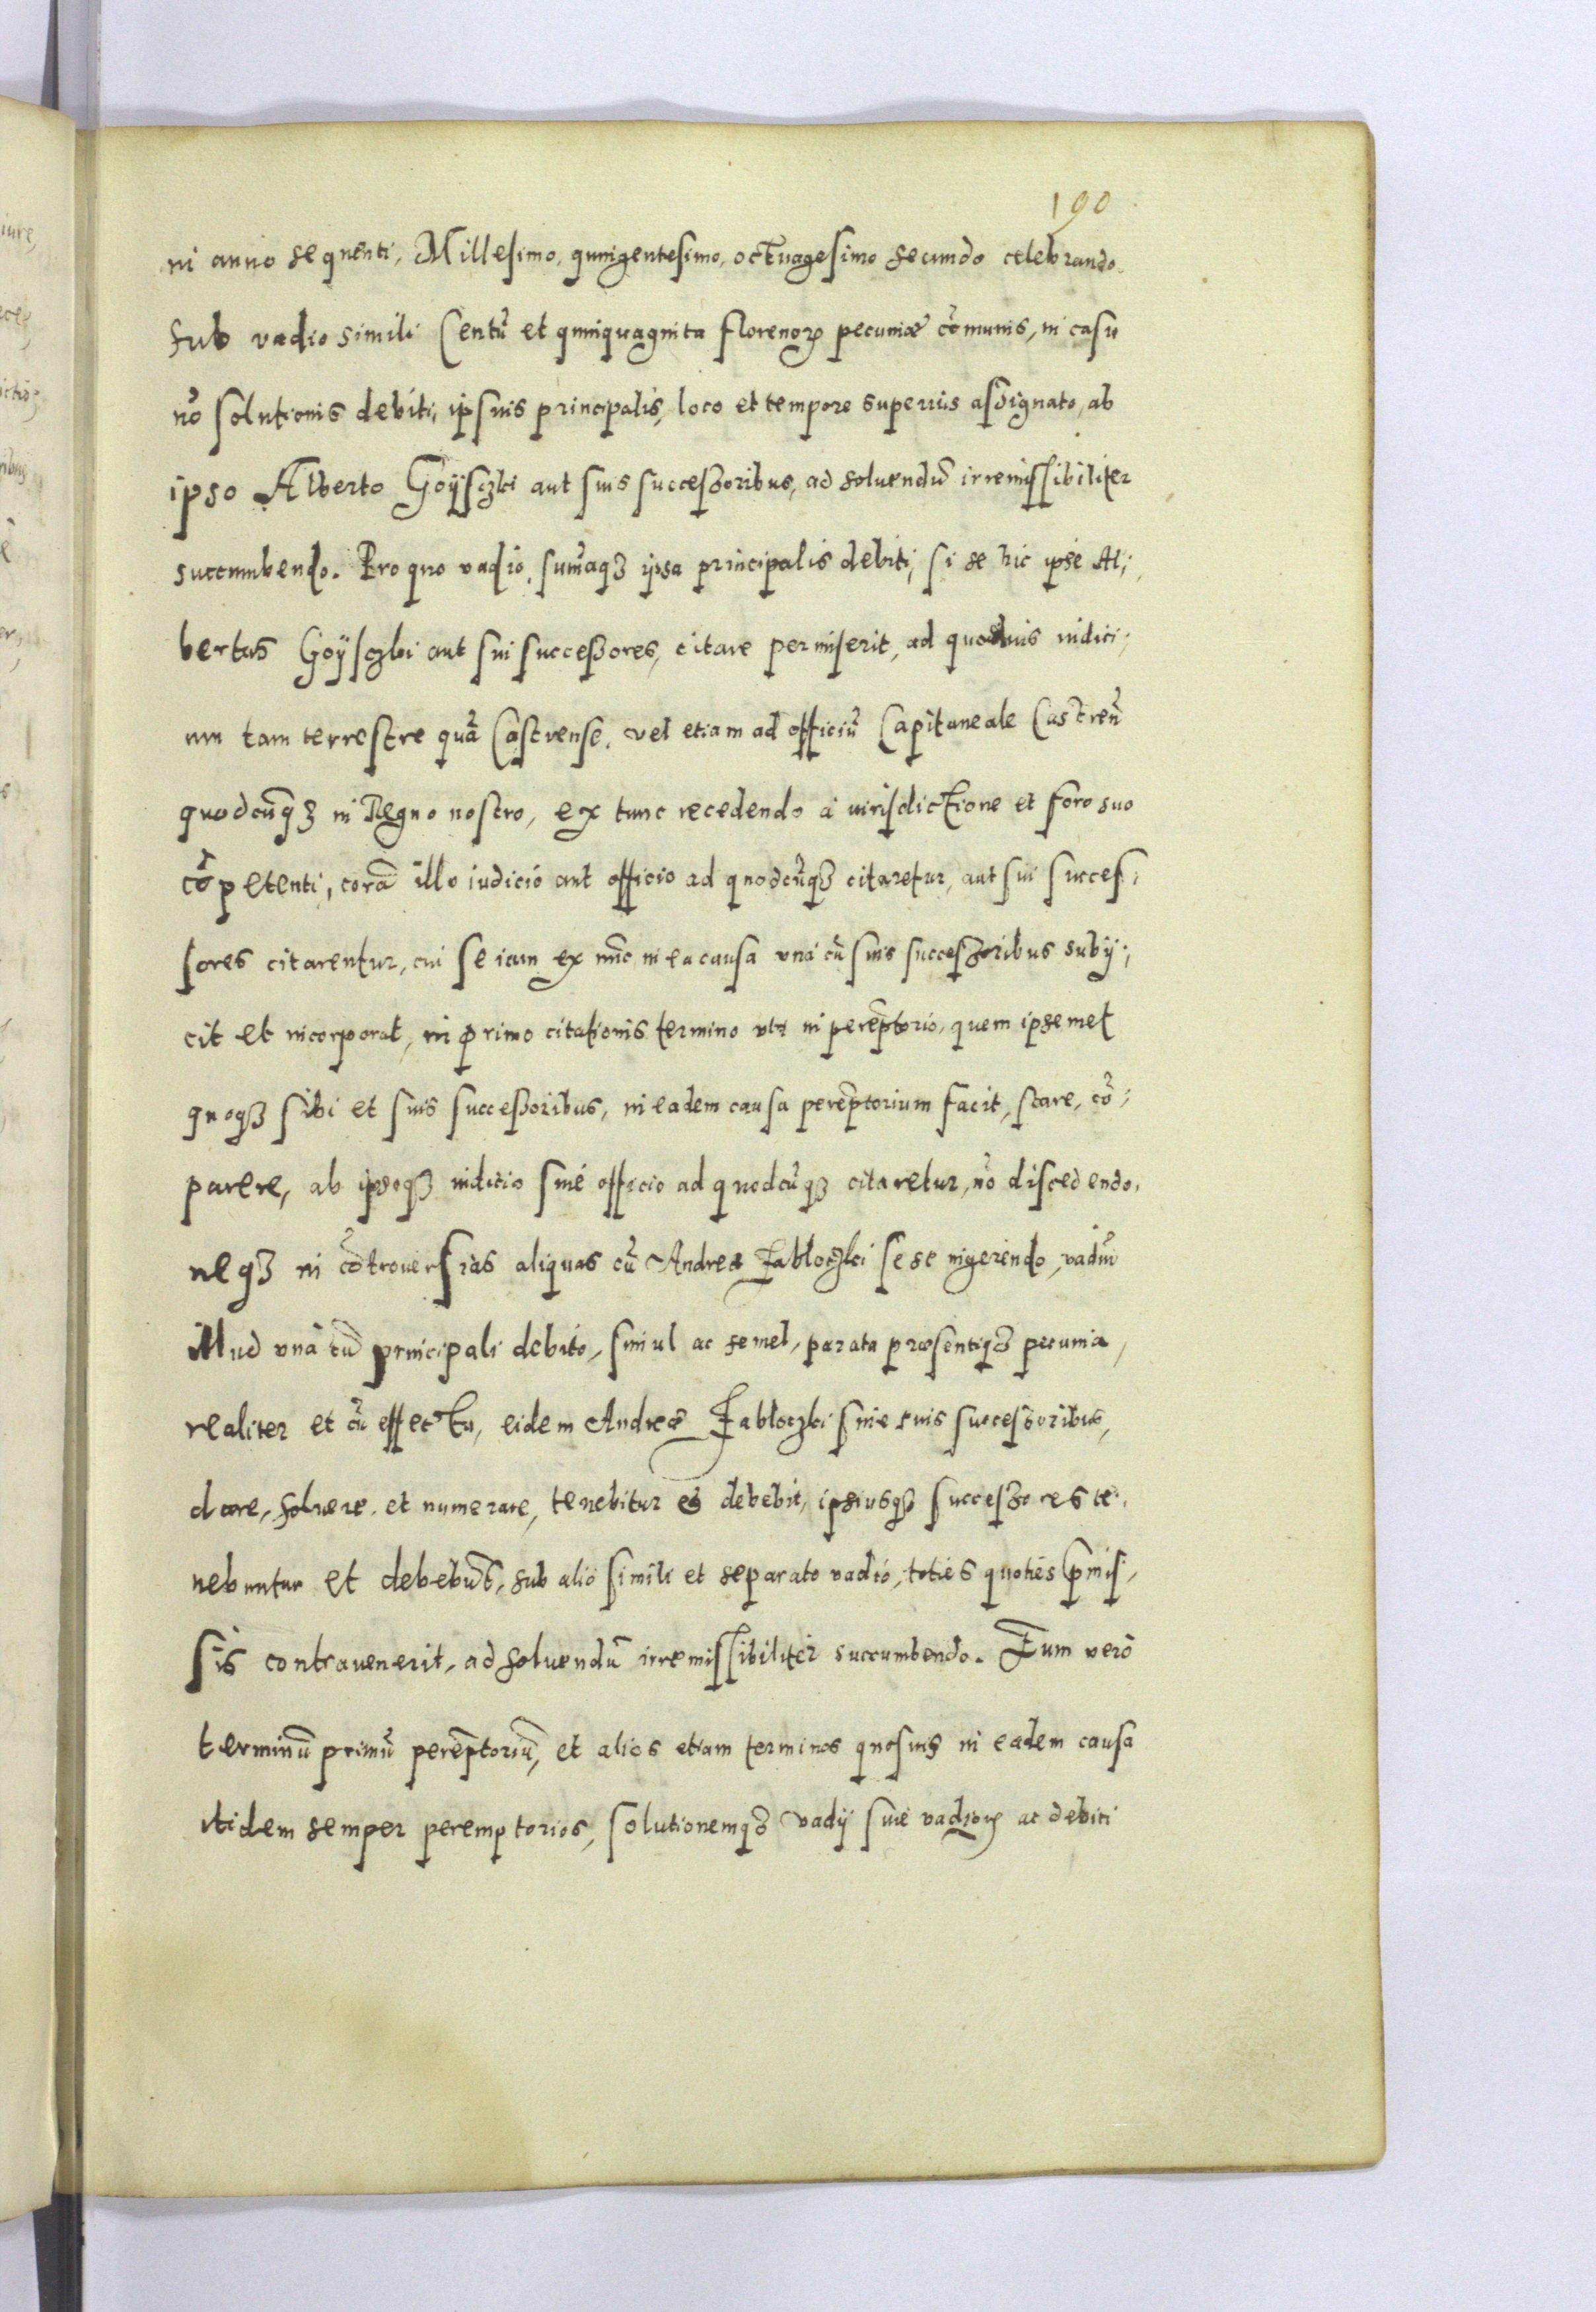 190
in anno sequenti, Millesimo, quingentesimo, octuagesimo secundo celebrando.
sub vadio simili Centũ et quinquaginta florenoꝝ pecuniæ cõmunis, in casu
nõ solutionis debiti, ipsius principalis, loco et tempore superius assignato, ab
ipso Alberto Goÿsczki aut suis successoribus, ad soluendũ irremissibiliter
succumbendo. Pro quo vadio, sum̃aqꝫ ipsa principalis debiti, si se hic ipse Al;
bertus Goÿsczki aut sui successores, citare permiserit, ad quoduis iudici;
um tam terrestre quã Castrense, vel etiam ad officiũ Capitaneale Castreñ
quodcũqꝫ in Regno nostro, ex tunc recedendo à iurisdictione et foro suo
cõpetenti, corã illo iudicio aut officio ad quodcũqꝫ citaretur, aut sui succes;
sores citarentur, cui se iam ex nũc in ea causa unà cũ suis successoribus subij;
cit et incorporat, in primo citationis termino vtꝫ in perẽptorio, quem ipsemet
quoqꝫ sibi et suis successoribus, in eadem causa perẽptorium facit, stare, cõ;
parere, ab ipsoqꝫ iudicio siue officio ad quodcũqꝫ citaretur, nõ discedendo,
neqꝫ in cõtrouersias aliquas cũ Andrea Jabloczki sese ingerendo, vadiũ
illud unà cũ principali debito, simul ac semel, parata præsentiqꝫ pecunia,
realiter et cũ effectu, eidem Andreæ Jabloczki siue suis successoribus,
dare, soluere, et numerare, tenebitur et debebit, ipsiusqꝫ successores te;
nebuntur et debebũt, sub alio simili et separato vadio, toties quoties p̃mis;
sis contrauenerit, ad soluendũ irremissibiliter succumbendo. Eum verò
terminũ primũ perẽptoriũ, et alios etiam terminos quosuis in eadem causa
itidem semper peremptorios, solutionemqꝫ vadij siue vadioꝝ ac debiti